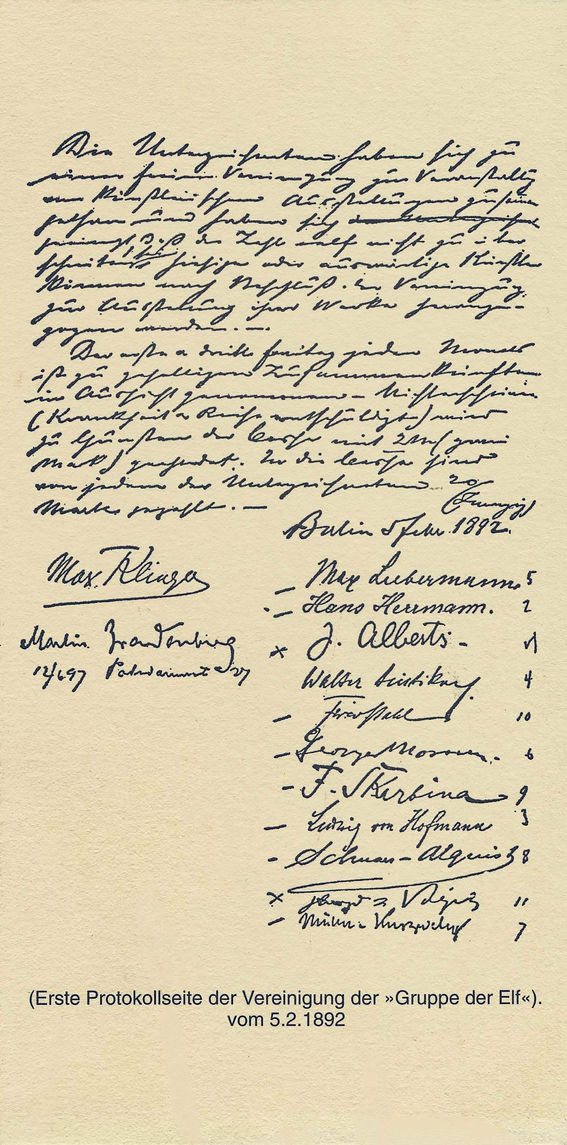 Die Unterzeichneten haben sich zu
einer freien Vereinigung zur Veranstaltg
von künstlerischen Ausstellungen zusam̅en
gethan und haben sich
geeinigt, daß die Zahl elf nicht zu über
schreiten sei, hiesige oder auswärtige Künstler
können nach Beschluß der Vereinigg.
zur Ausstellung ihrer Werke herange-
zogen werden. —
Der erste u dritte Freitag jeden Monats
ist zu geselligen Zusammenkünften
in Aussicht genommen — Nichterscheinen
(Krankheit u Reise entschuldigt) wird
zu Gunsten der Casse mit 2 M (zwei
Mark) geahndet. In die Casse sind
von jedem der Unterzeichneten 20
(zwanzig)
Mark gezahlt. —
Berlin 5 Febr. 1892.
Max Klinger
Martin Brandenburg
12/6 97
— Max Liebermann 5
— Hans Herrmann. 2
x J. Alberts —
Walter Leistikow 4
— Freostahl 10
— George Mosson. 6
— F. Skarbina 9
— Ludwig von Hofmann 3
- Schnars-Alquist 8
x Vogel 11
— Müller-Kurzwelly 7
(Erste Protokollseite der Vereinigung der »Gruppe der Elf«).
vom 5.2.1892